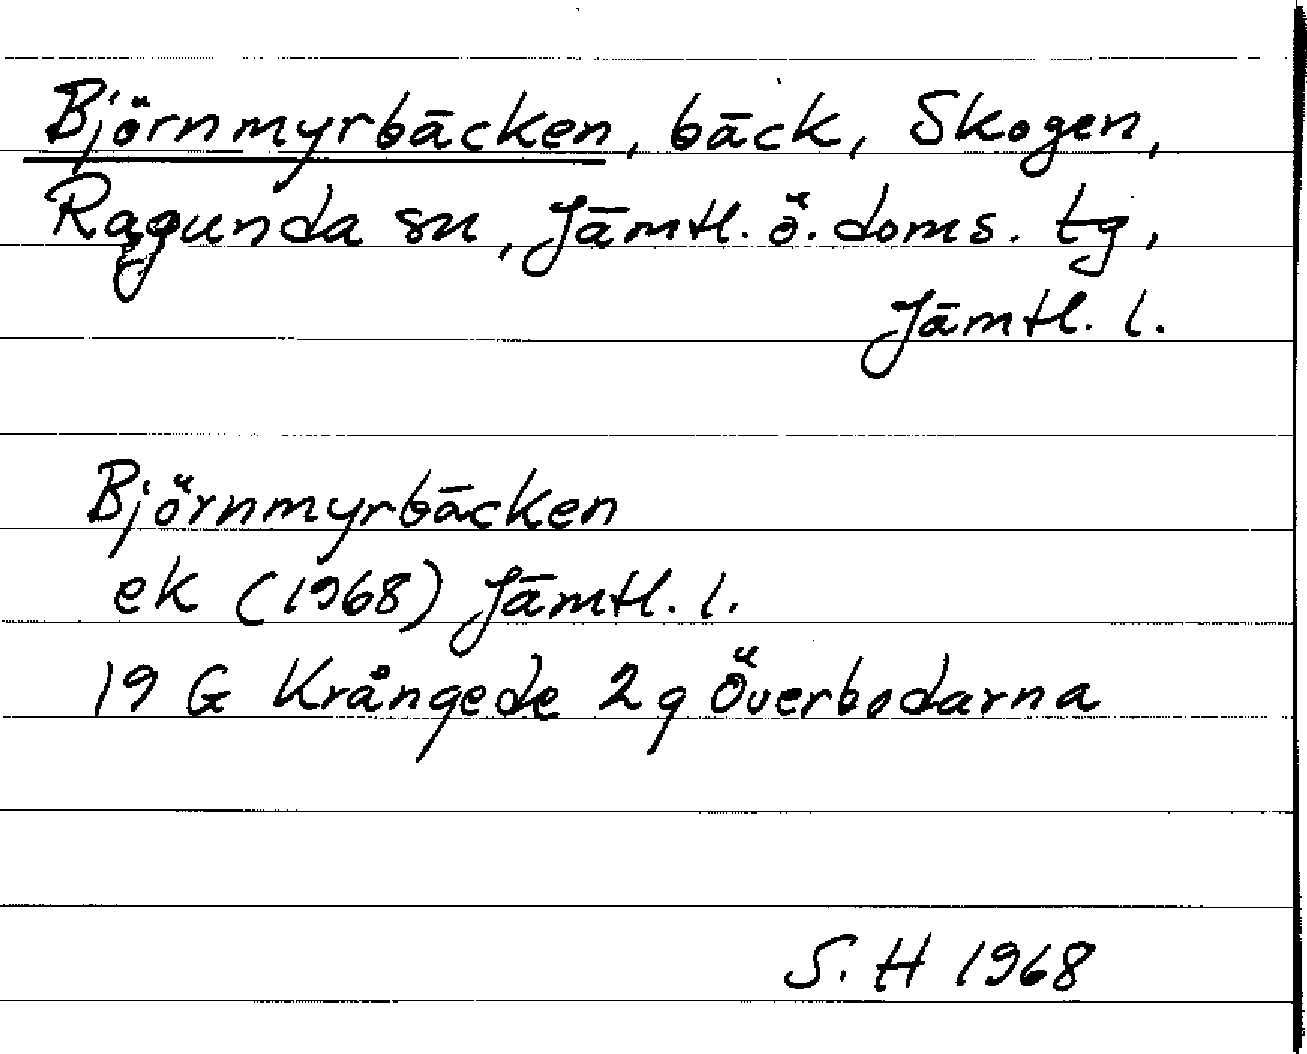 Björnmyrbäcken, bäck, Skogen,
Ragunda sn, Jämtl. ö. doms. tg,
Jämtl. l.
Björnmyrbäcken
ek (1968) Jämtl. l.
19 G Krångede 2g Överbodarna
S. H 1968